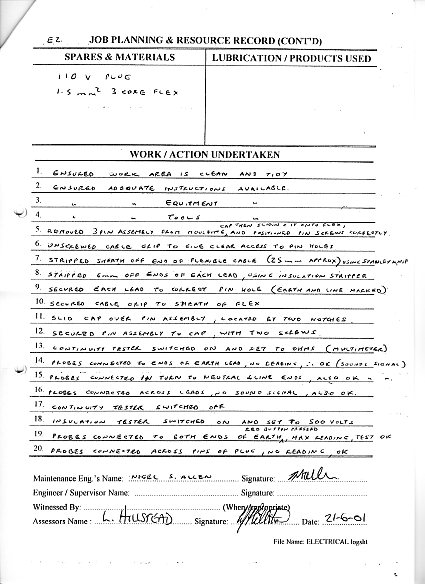 E2.
JOB PLANNING & RESOURCE RECORD (CONT'D)
SPARES & MATERIALS
LUBRICATION / PRODUCTS USED
110 V PLUG
1.5 mm² 3 CORE FLEX
WORK / ACTION UNDERTAKEN
1. ENSURED WORK AREA IS CLEAN AND TIDY
2. ENSURED ADEQUATE INSTRUCTIONS AVAILABLE.
3. " " EQUIPMENT "
4. " " TOOLS "
CAP THEN SLIDING IT ONTO FLEX,
5. REMOVED 3 PIN ASSEMBLY FROM MOULDING, AND POSITIONED PIN SCREWS CORRECTLY
6. UNSCREWED CABLE GRIP TO GIVE CLEAR ACCESS TO PIN HOLES
7. STRIPPED SHEATH OFF END OF FLEXIBLE CABLE (25mm APPROX) USING STANLEY KNIFE
8. STRIPPED 6mm OFF ENDS OF EACH LEAD, USING INSULATION STRIPPER
9. SECURED EACH LEAD TO CORRECT PIN HOLE (EARTH AND LINE MARKED)
10. SECURED CABLE GRIP TO SHEATH OF FLEX
11. SLID CAP OVER PIN ASSEMBLY, LOCATED BY TWO NOTCHES
12. SECURED PIN ASSEMBLY TO CAP, WITH TWO SCREWS.
13. CONTINUITY TESTER SWITCHED ON AND SET TO OHMS (MULTIMETER)
14. PROBES CONNECTED TO ENDS OF EARTH LEAD, NO READING, ∴ OK (SOUNDS SIGNAL)
15. PROBES CONNECTED IN TURN TO NEUTRAL & LINE ENDS, ALSO OK " ".
16. PROBES CONNECTED ACROSS LEADS, NO SOUND SIGNAL, ALSO OK.
17. CONTINUITY TESTER SWITCHED OFF
18. INSULATION TESTER SWITCHED ON AND SET TO 500 VOLTS
RED BUTTON PRESSED
19. PROBES CONNECTED TO BOTH ENDS OF EARTH, MAX READING, TEST OK
20. PROBES CONNECTED ACROSS PINS OF PLUG, NO READING OK
Maintenance Eng.'s Name: NIGEL S. ALLEN Signature:
Engineer / Supervisor Name: Signature:
Witnessed By: (When appropriate)
Assessors Name: L. HILLSTEAD Signature: Date: 21-6-01
File Name: ELECTRICAL logsht